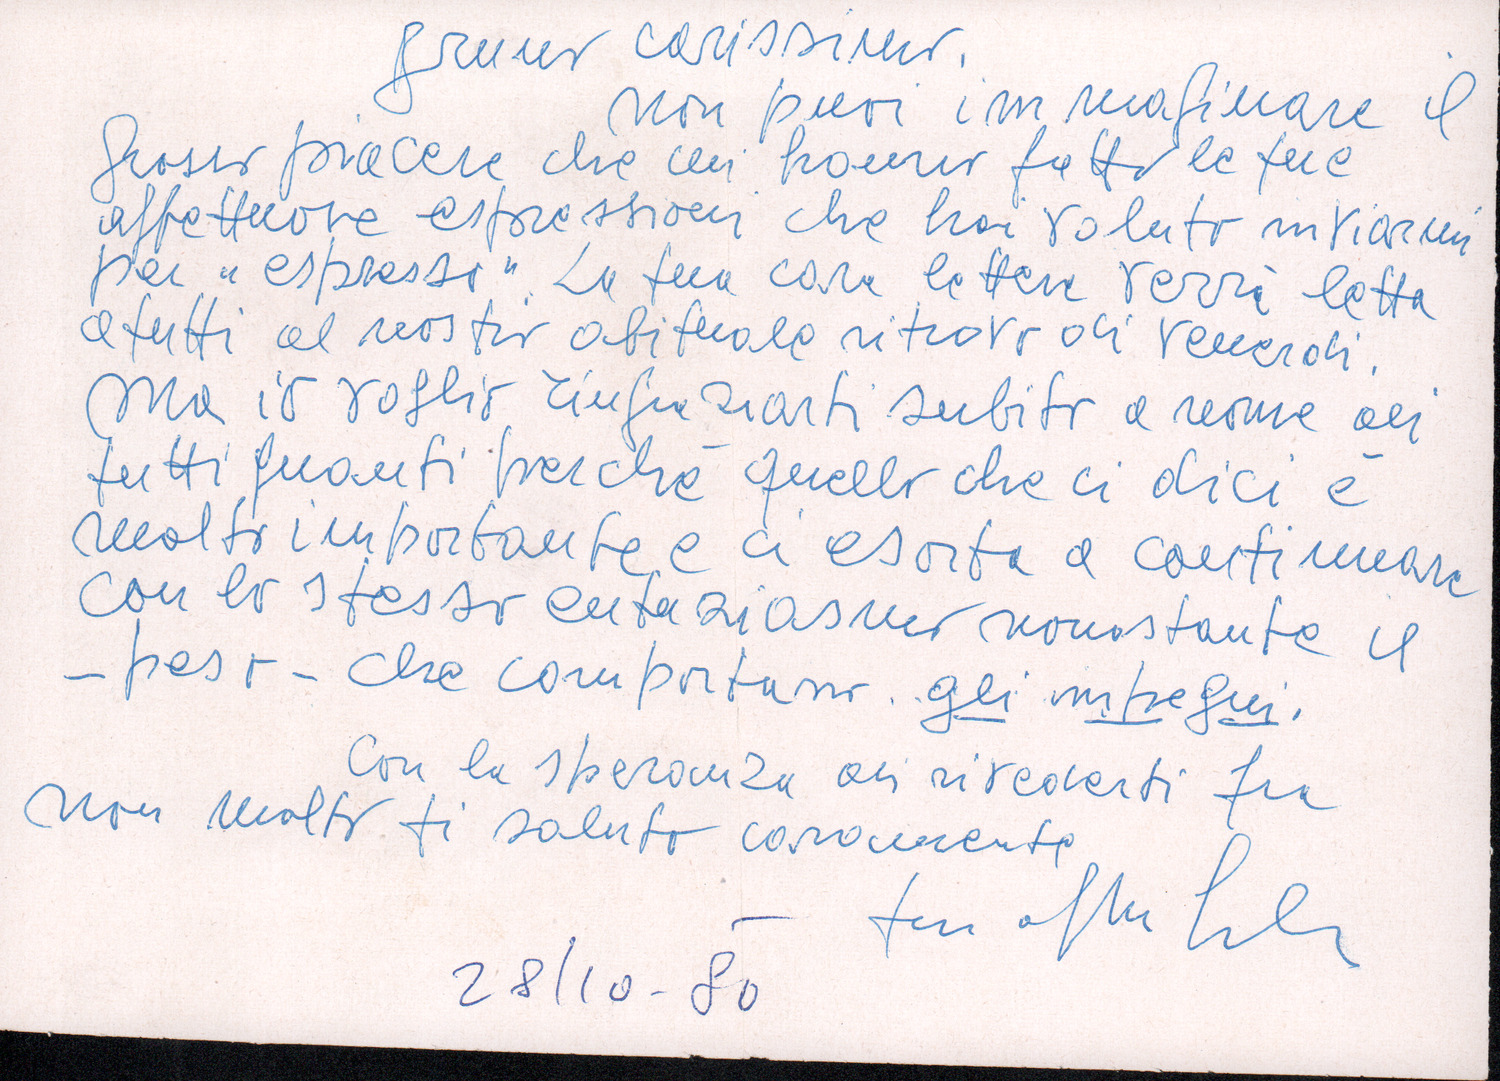 carissimo,
non puoi immaginare il
grosso piacere che mi hanno fatto le tue
affettuose espressioni che hai voluto inviarmi
per "espresso". La tua cara lettera verrà letta
a tutti al nostro abituale ritrovo di venerdi.
Ma io voglio ringraziarti subito a nome di
tutti quanti perchè quello che ci dici è
molto importante e ci esorta a continuare
con lo stesso entuziasmo nonostante il
- peso - che comportano gli impegni.
Con la speranza di rivederti fra
non molto ti saluto caramente
tua
28/10-80